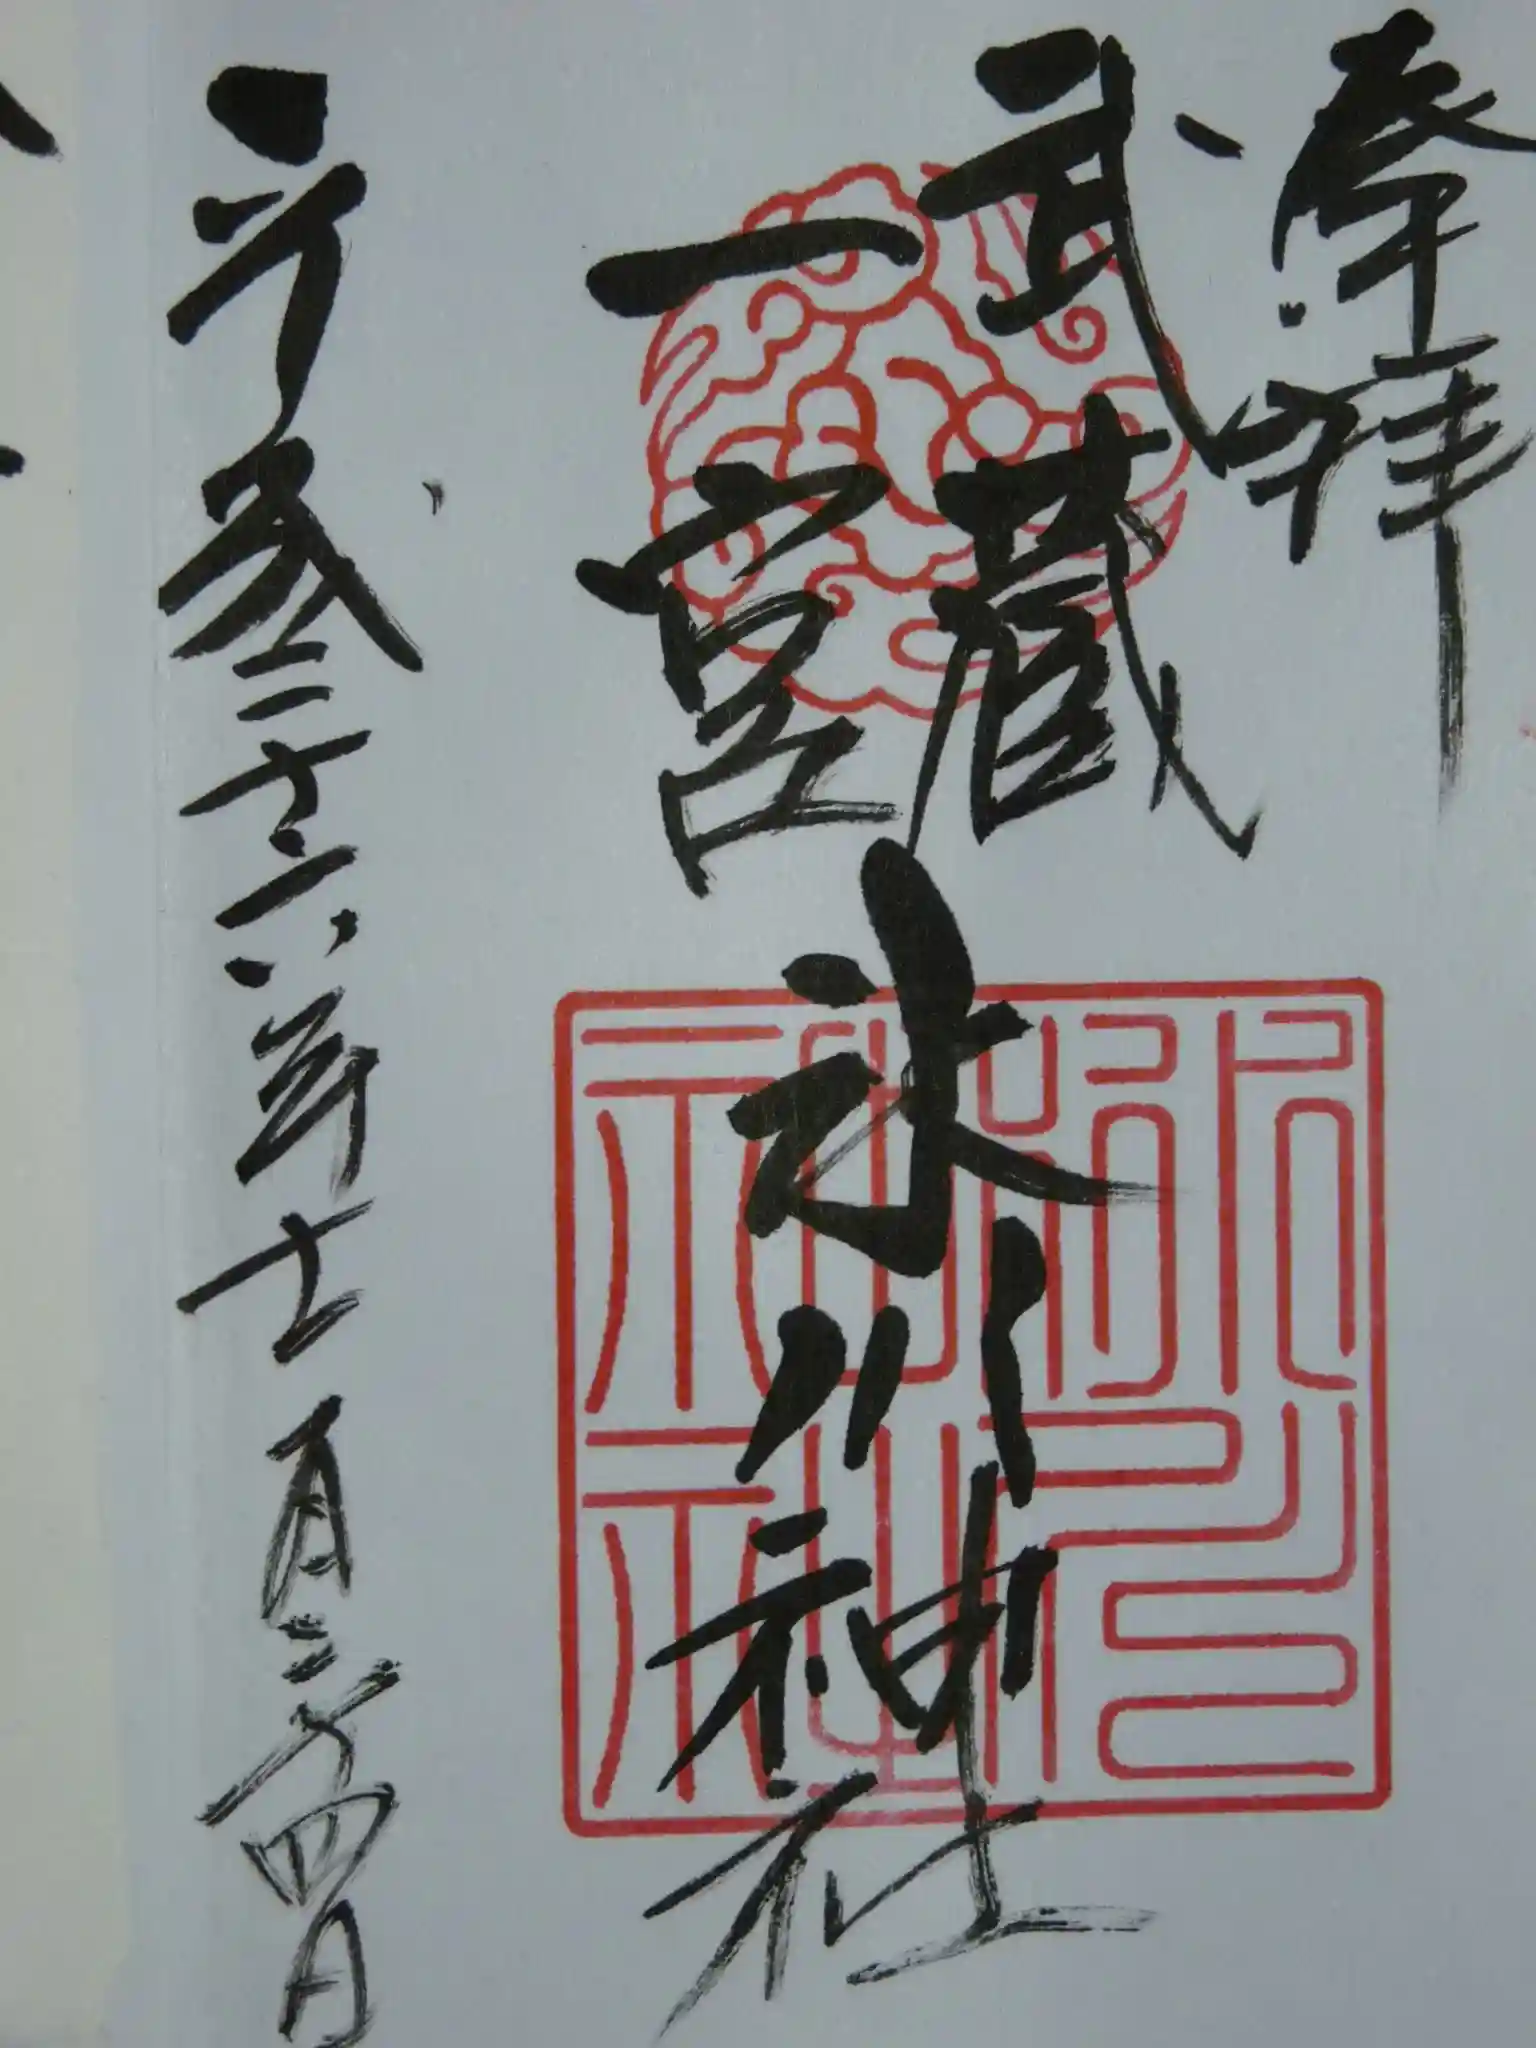 奉拝
武蔵
一宮
氷川神社
平成二十六年十一月二十四日
氷川神社